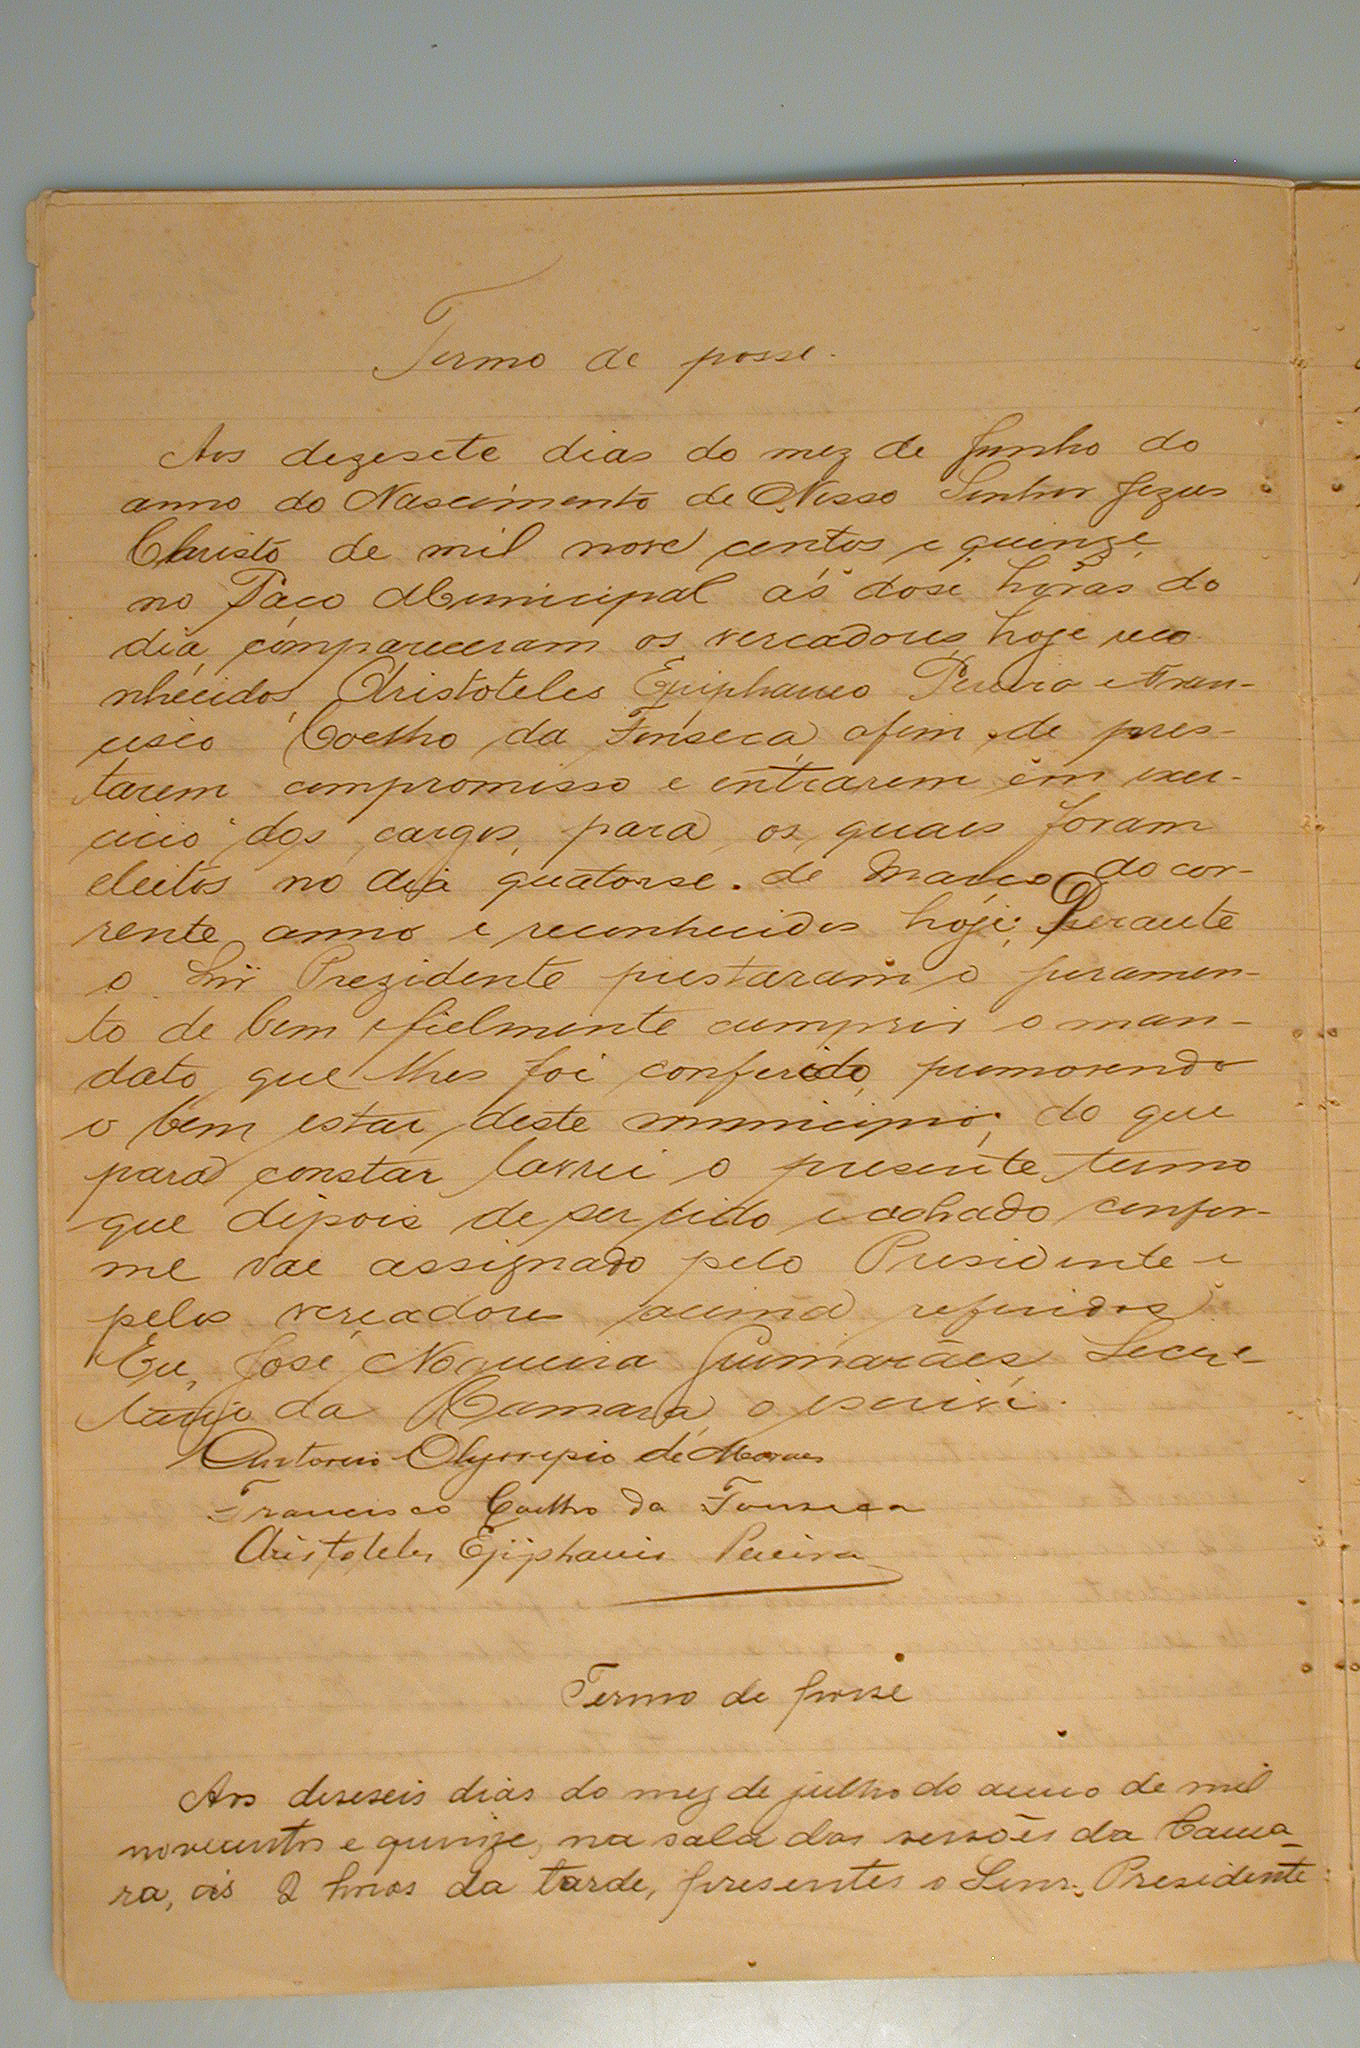 Termo de posse.
Aos dezesete dias do mez de Junho do
anno do Nascimento de Nosso Senhor Jezus
Christo de mil nove centos e quinze
no Paço Municipal ás dose horas do
dia compareceram os vereadores hoje reco
nhecidos, Aristoteles Epiphanio Pereira e Fran-
cisco Coelho da Fonseca, afim de pres-
tarem compromisso e entrarem em exer-
cicio dos cargos, para os quaes foram
eleitos no dia quatorse. de Março do cor-
rente anno e reconhecidos hoje; Perante
o Snr Prezidente prestaram o juramen-
to de bem e fielmente cumprir o man-
dato que lhes foi conferido, promovendo
o bem estar deste municipio; do que
para constar lavrei o presente termo
que depois de ser lido e achado confor-
me vae assignado pelo Presidente e
pelos vereadores acima referidos
Eu, José Nogueira Guimarães, Secre-
tario da Camara o escrivi.
Antonio Olympio de Moraes
Francisco Coelho da Fonseca
Aristoteles Epiphanio Pereira
Termo de posse
Aos deseseis dias do mez de julho do anno de mil
novecentos e quinze, na sala das sessões da Cama-
ra, ás 2 horas da tarde, presentes o Senr. Presidente